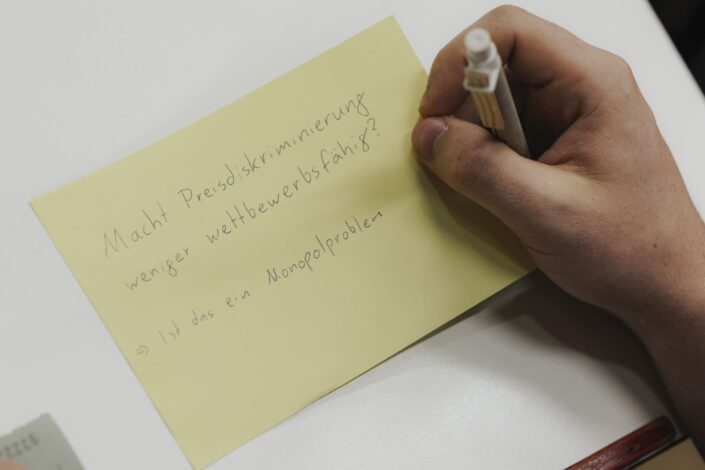 Macht Preisdiskriminierung
weniger wettbewerbsfähig?
⇒ Ist das ein Monopolproblem